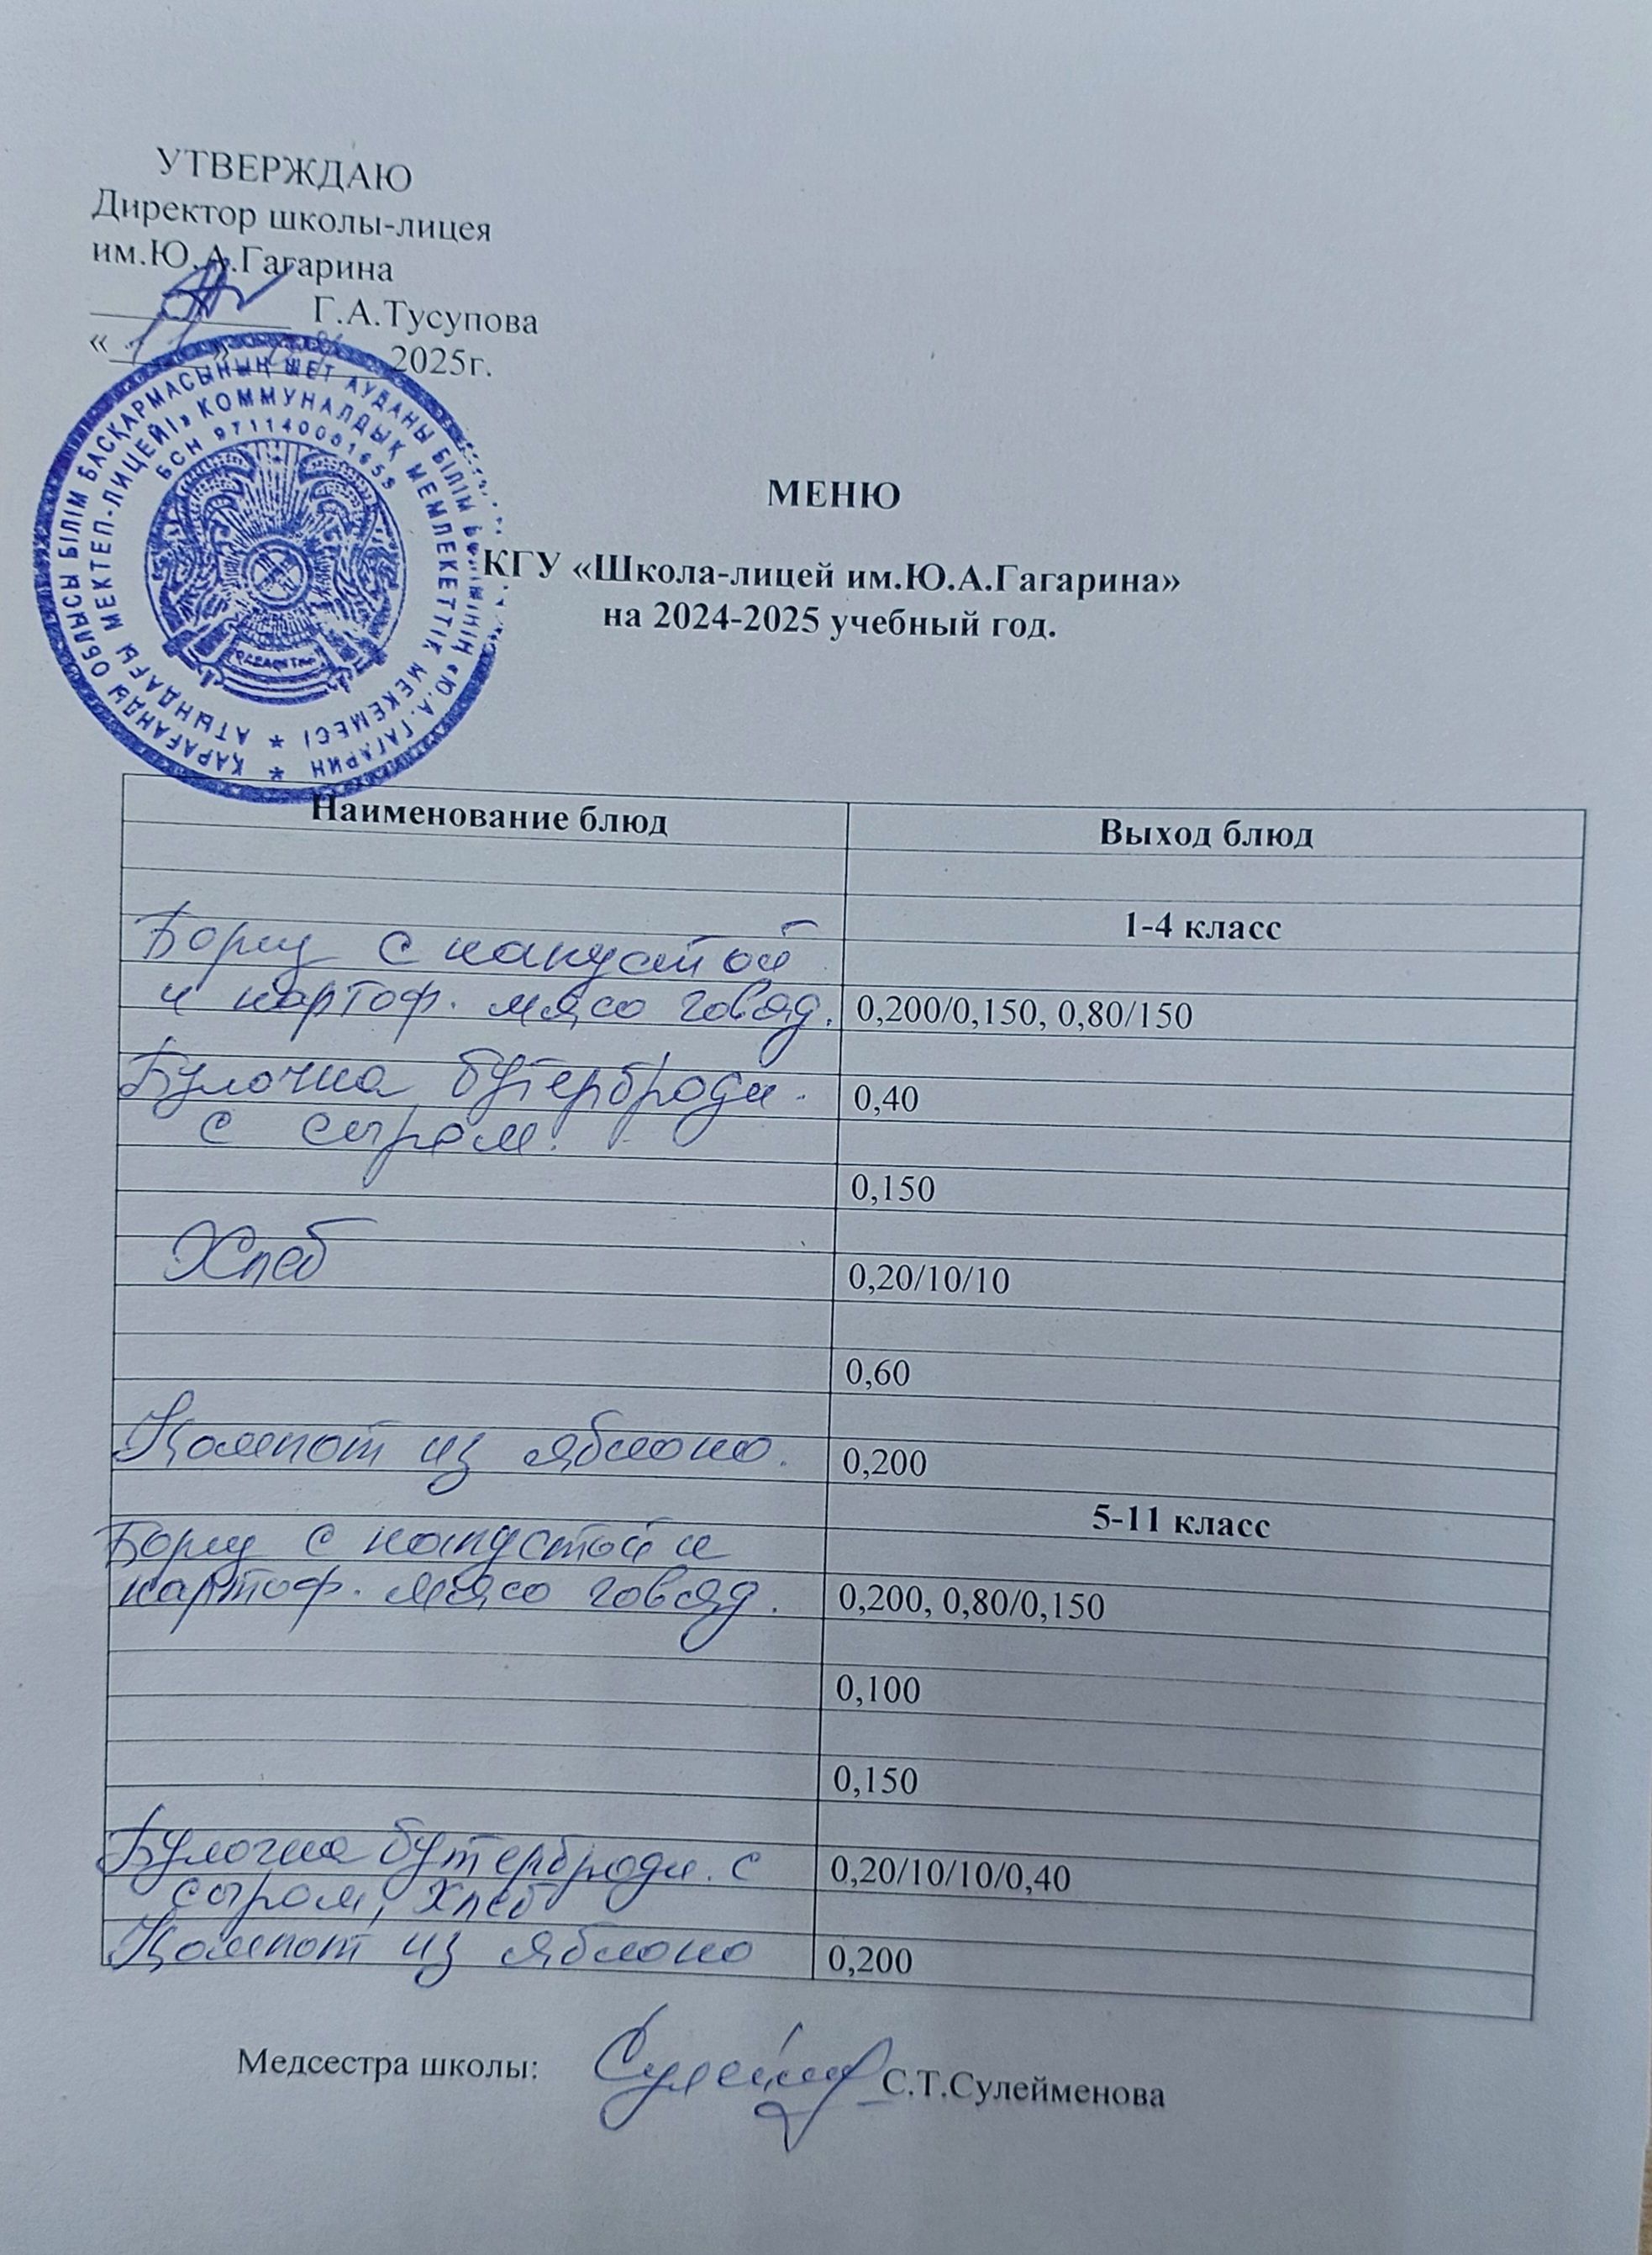 УТВЕРЖДАЮ
Директор школы-лицея
им.Ю.А.Гагарина
Г.А.Тусупова
« 11 » 2025г.
ҚАРАҒАНДЫ ОБЛЫСЫ БІЛІМ БАСҚАРМАСЫНЫҢ ШЕТ АУДАНЫ БІЛІМ БӨЛІМІНІҢ «Ю.А. ГАГАРИН
АТЫНДАҒЫ МЕКТЕП-ЛИЦЕЙІ» КОММУНАЛДЫҚ МЕМЛЕКЕТТІК МЕКЕМЕСІ
БСН
МЕНЮ
КГУ «Школа-лицей им.Ю.А.Гагарина»
на 2024-2025 учебный год.
Наименование блюд Выход блюд
1-4 класс
Борщ с капустой
и картоф. мясо говяд. 0,200/0,150, 0,80/150
Булочка бутербродн. 0,40
с сыром.
0,150
Хлеб 0,20/10/10
0,60
Компот из яблоко. 0,200
5-11 класс
Борщ с капустой и
картоф. мясо говяд. 0,200, 0,80/0,150
0,100
0,150
Булочка бутербродн. с 0,20/10/10/0,40
сыром, Хлеб
Компот из яблоко 0,200
Медсестра школы: С.Т.Сулейменова